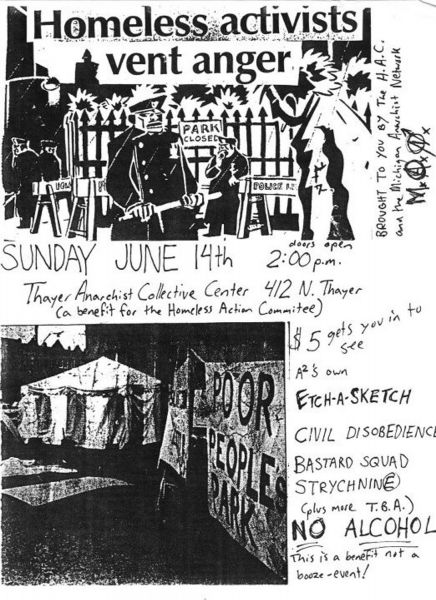 Homeless activists
vent anger
PARK
CLOSED
POLICE
BROUGHT TO YOU BY THE H.A.C.
and the Michigan Anarchist Network
SUNDAY JUNE 14th
doors open
2:00 p.m.
Thayer Anarchist Collective Center 412 N. Thayer
(a benefit for the Homeless Action Commitee)
POOR
PEOPLES
PARK
$5 gets you in to
see
A²'s own
ETCH-A-SKETCH
CIVIL DISOBEDIENCE
BASTARD SQUAD
STRYCHNINE
(plus more T.B.A.)
NO ALCOHOL
This is a benefit not a
booze-event!